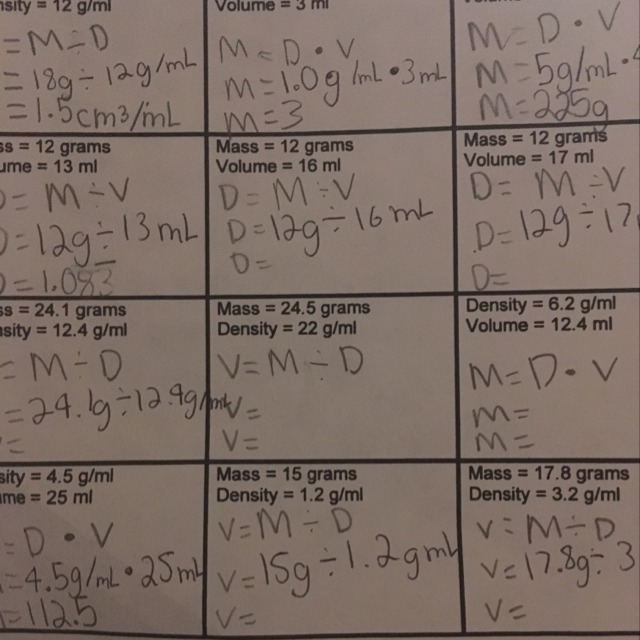 sity = 12 g/ml
= M ÷ D
= 18g ÷ 12g/mL
= 1.5cm3/mL
Volume = 3 ml
M = D • V
m = 1.0g/mL • 3mL
m = 3
M = D • V
M = 5g/mL • 4
M = 225g
ss = 12 grams
ume = 13 ml
D = M ÷ V
D = 12g ÷ 13mL
D = 1.083
Mass = 12 grams
Volume = 16 ml
D = M ÷ V
D = 12g ÷ 16mL
D =
Mass = 12 grams
Volume = 17 ml
D = M ÷ V
D = 12g ÷ 17
D =
ss = 24.1 grams
sity = 12.4 g/ml
= M ÷ D
= 24.1g ÷ 12.4g/mL
=
Mass = 24.5 grams
Density = 22 g/ml
V = M ÷ D
V =
V =
Density = 6.2 g/ml
Volume = 12.4 ml
M = D • V
m =
M =
sity = 4.5 g/ml
ume = 25 ml
= D • V
= 4.5g/mL • 25mL
= 112.5
Mass = 15 grams
Density = 1.2 g/ml
V = M ÷ D
V = 15g ÷ 1.2gmL
V =
Mass = 17.8 grams
Density = 3.2 g/ml
V = M ÷ D
V = 17.8g ÷ 3
V =